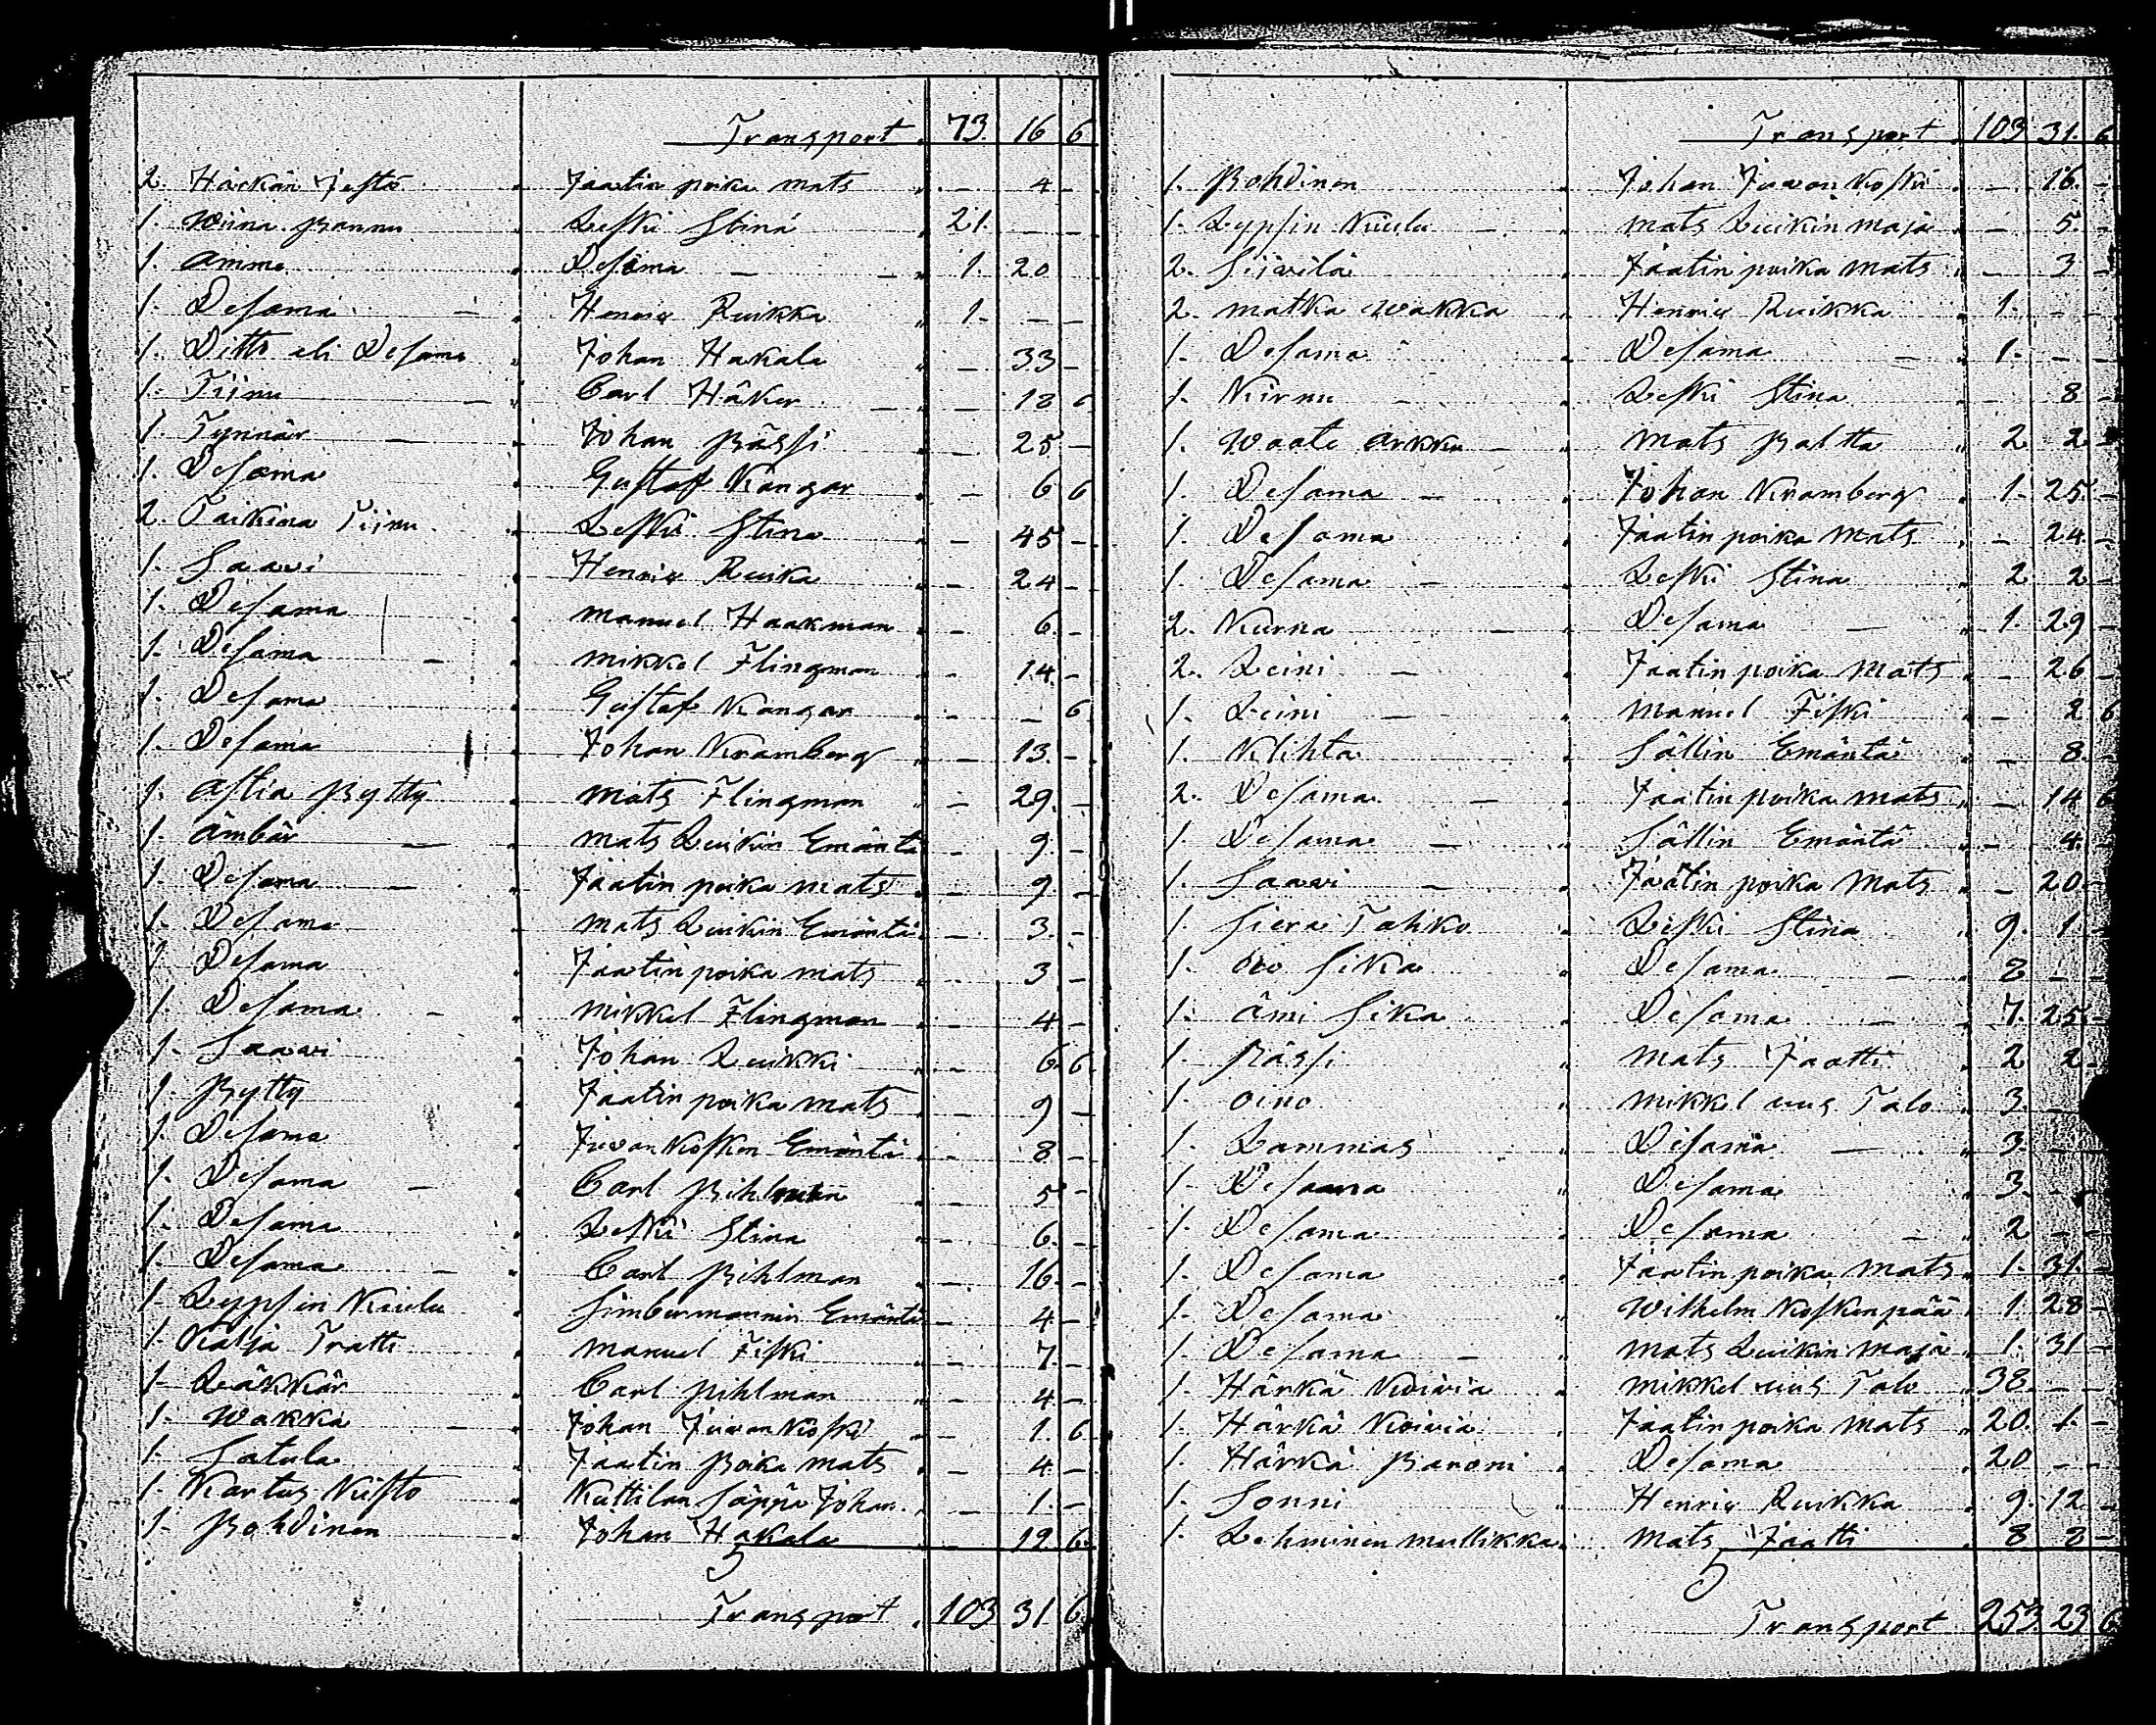 Transport 73. 16 6
2. Härkän Jestö Jaatin poika mats - 4 -
1. Wiina pannu Leski Stina 21. - -
1. Amme Desama - 1. 20
1. Desama - Henric Ruikka 1. - -
1. Ditto eli Desama Johan Hakala - 33 -
1. Tiinu - Carl Håker - 18 6
1. Tynnär - Johan Pässi - 25 -
1. Desama Gustaf Kangar - 6 6
2. Taikina Tiinu Leski Stina - 45 -
1. Saavi Henric Ruika - 24 -
1. Desama manuel Haakman - 6. -
1. Desama - mikkel Flingman - 14. -
1. Desama Gustaf Kangar - - 6
1. Desama Johan Kramberg - 13. -
1. Astia Pytty mats Flingman - 29. -
1. Ämbär - mats Luikin Emäntä - 9. -
1. Desama - Jaatin poika mats - 9. -
1. Desama mats Luikin Emäntä - 3. -
1. Desama Jaatin poika mats - 3 -
1. Desama - mikkel Flingman - 4 -
1. Saavi Johan Luikki - 6. 6
1. Pytty Jaatin poika mats - 9 -
1. Desama Juvankosken Emäntä - 8 -
1. Desama - Carl Pihlman - 5 -
1. Desama Leski Stina - 6. -
1. Desama - Carl Pihlman - 16. -
1. Lypsin Kiulu Simbermannin Emäntä - 4 -
1. Kalja Tratti manuel Fiski - 7. -
1. Läkkär Carl Pihlman - 4 -
1. Wakka - Johan Juvankoski - 1. 6
1. Satula Jaatin Poika mats - 4 -
1. Kartus Kisto Kuttilan Säppä Johan. - 1. -
1. Pohdinen Johan Hakala - 19 6.
5
Transport 103 31 6
Transport 103 31. 6
1. Pohdinen Johan Juvankoski - 16. -
1. Lypsin Kiulu - mats Luikin maja - 5. -
2. Siivilä Jaatin poika mats - 3 -
2. matka wakka Henric Ruikka 1. - -
1. Desama Desama - 1. - -
1. Kirnu - Leski Stina - 8 -
1. Waate arkku - mats Paltta 2 2 -
1. Desama - Johan Kramberg 1. 25. -
1. Desama Jaatin poika mats - 24 -
1. Desama - Leski Stina 2 2 -
2. Kurna - Desama - 1. 29 -
2. Leini - Jaatin poika mats - 26 -
1. Leini - manuel Fiski - 2 6
1. Klihta Sällin Emäntä - 8. -
2. Desama - Jaatin poika mats - 14 6
1. Desama - Sällin Emäntä - 4. -
1. Saavi - Jaatin poika mats - 20 -
1. Siera Tahko Leski Stina 9. 1 -
1. Oro Sika Desama - 8 - -
1. Ämi Sika Desama - 7. 25 -
1. Pässi mats Jaatti 2 2 -
1. Oino mikkel uus Talo 3. -
1. Lammas Desama - 3. -
1. Desama Desama 3. - -
1. Desama Desama - 2 - -
1. Desama Jaatin poika mats 1. 31. -
1. Desama Wilhelm Koskenpää 1. 28 -
1. Desama - mats Luikin maja 1. 31 -
1. Härkä Koivia mikkel uus Talo 38. - -
1. Härkä Koivia Jaatin poika mats 20. 1. -
1. Härkä Paroni Desama 20 - -
1. Sonni Henric Ruikka 9. 12 -
1. Lehminen mullikka mats Jaatti 8 8 -
5
Transport 253. 23 6